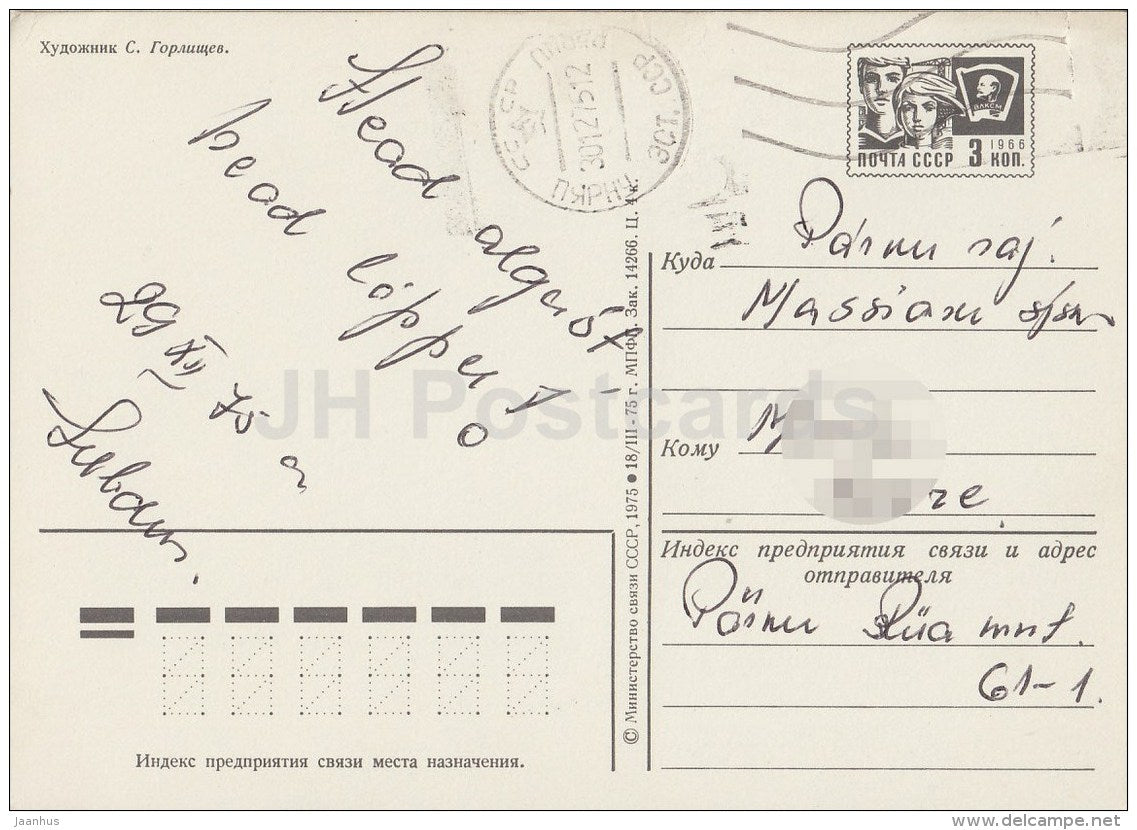 Художник С. Горлищев.
Head algust
head lõppu!
29 XII 75 a
ПЯРНУ
30 12 75 12
ЭСТ. ССР
ВЛКСМ
1966
ПОЧТА СССР 3 КОП.
Куда Pärnu raj.
Massiaru
Кому M
re
Индекс предприятия связи и адрес
отправителя
Pärnu Riia mnt.
61-1.
© Министерство связи СССР, 1975 ● 18/III-75 г. МПФГ. Зак. 14266. Ц. 4 к.
Индекс предприятия связи места назначения.
JH Postcards
Jaanhus
www.delcampe.net